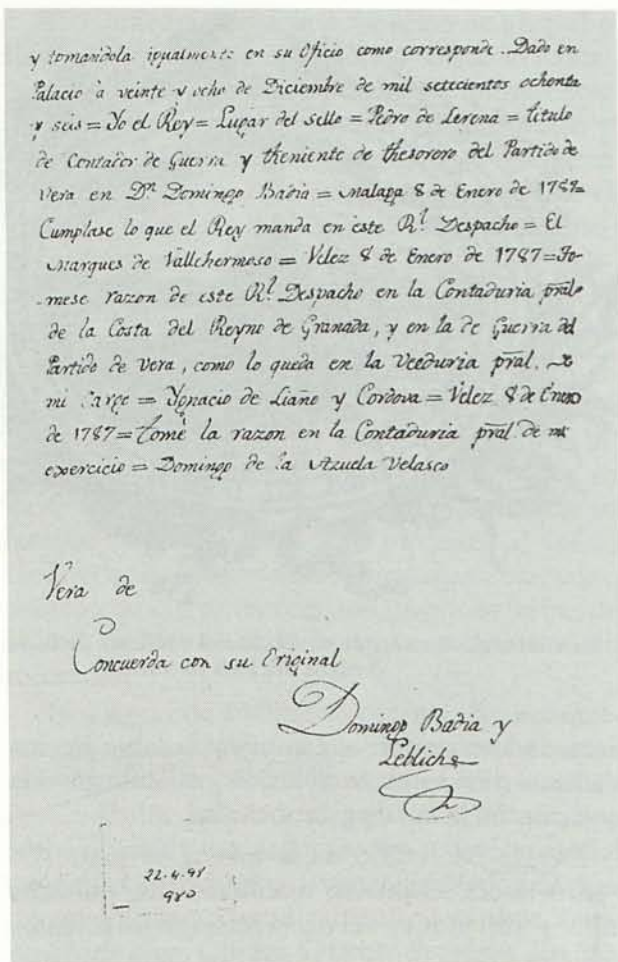 y tomandola igualmente en su Oficio como corresponde. Dado en
Palacio à veinte y ocho de Diciembre de mil setecientos ochenta
y seis = Yo el Rey = Lugar del sello = Pedro de Lerena = titulo
de Contador de Guerra y theniente de thesorero del Partido de
Vera en Dn. Domingo Badia = Malaga 8 de Enero de 1787=
Cumplase lo que el Rey manda en este Rl. Despacho = El
Marques de Vallehermoso = Velez 8 de Enero de 1787=To-
mese razon de este Rl. Despacho en la Contaduria pral.
de la Costa del Reyno de Granada, y en la de Guerra del
Partido de Vera, como lo queda en la Veeduria pral. de
mi Cargo = Ygnacio de Liaño y Cordova = Velez 8 de Enero
de 1787= tomè la razon en la Contaduria pral. de mi
exercicio = Domingo de la Azuela Velasco
Vera de
Concuerda con su Original
Domingo Badia y
Leblich
22-4-98
980